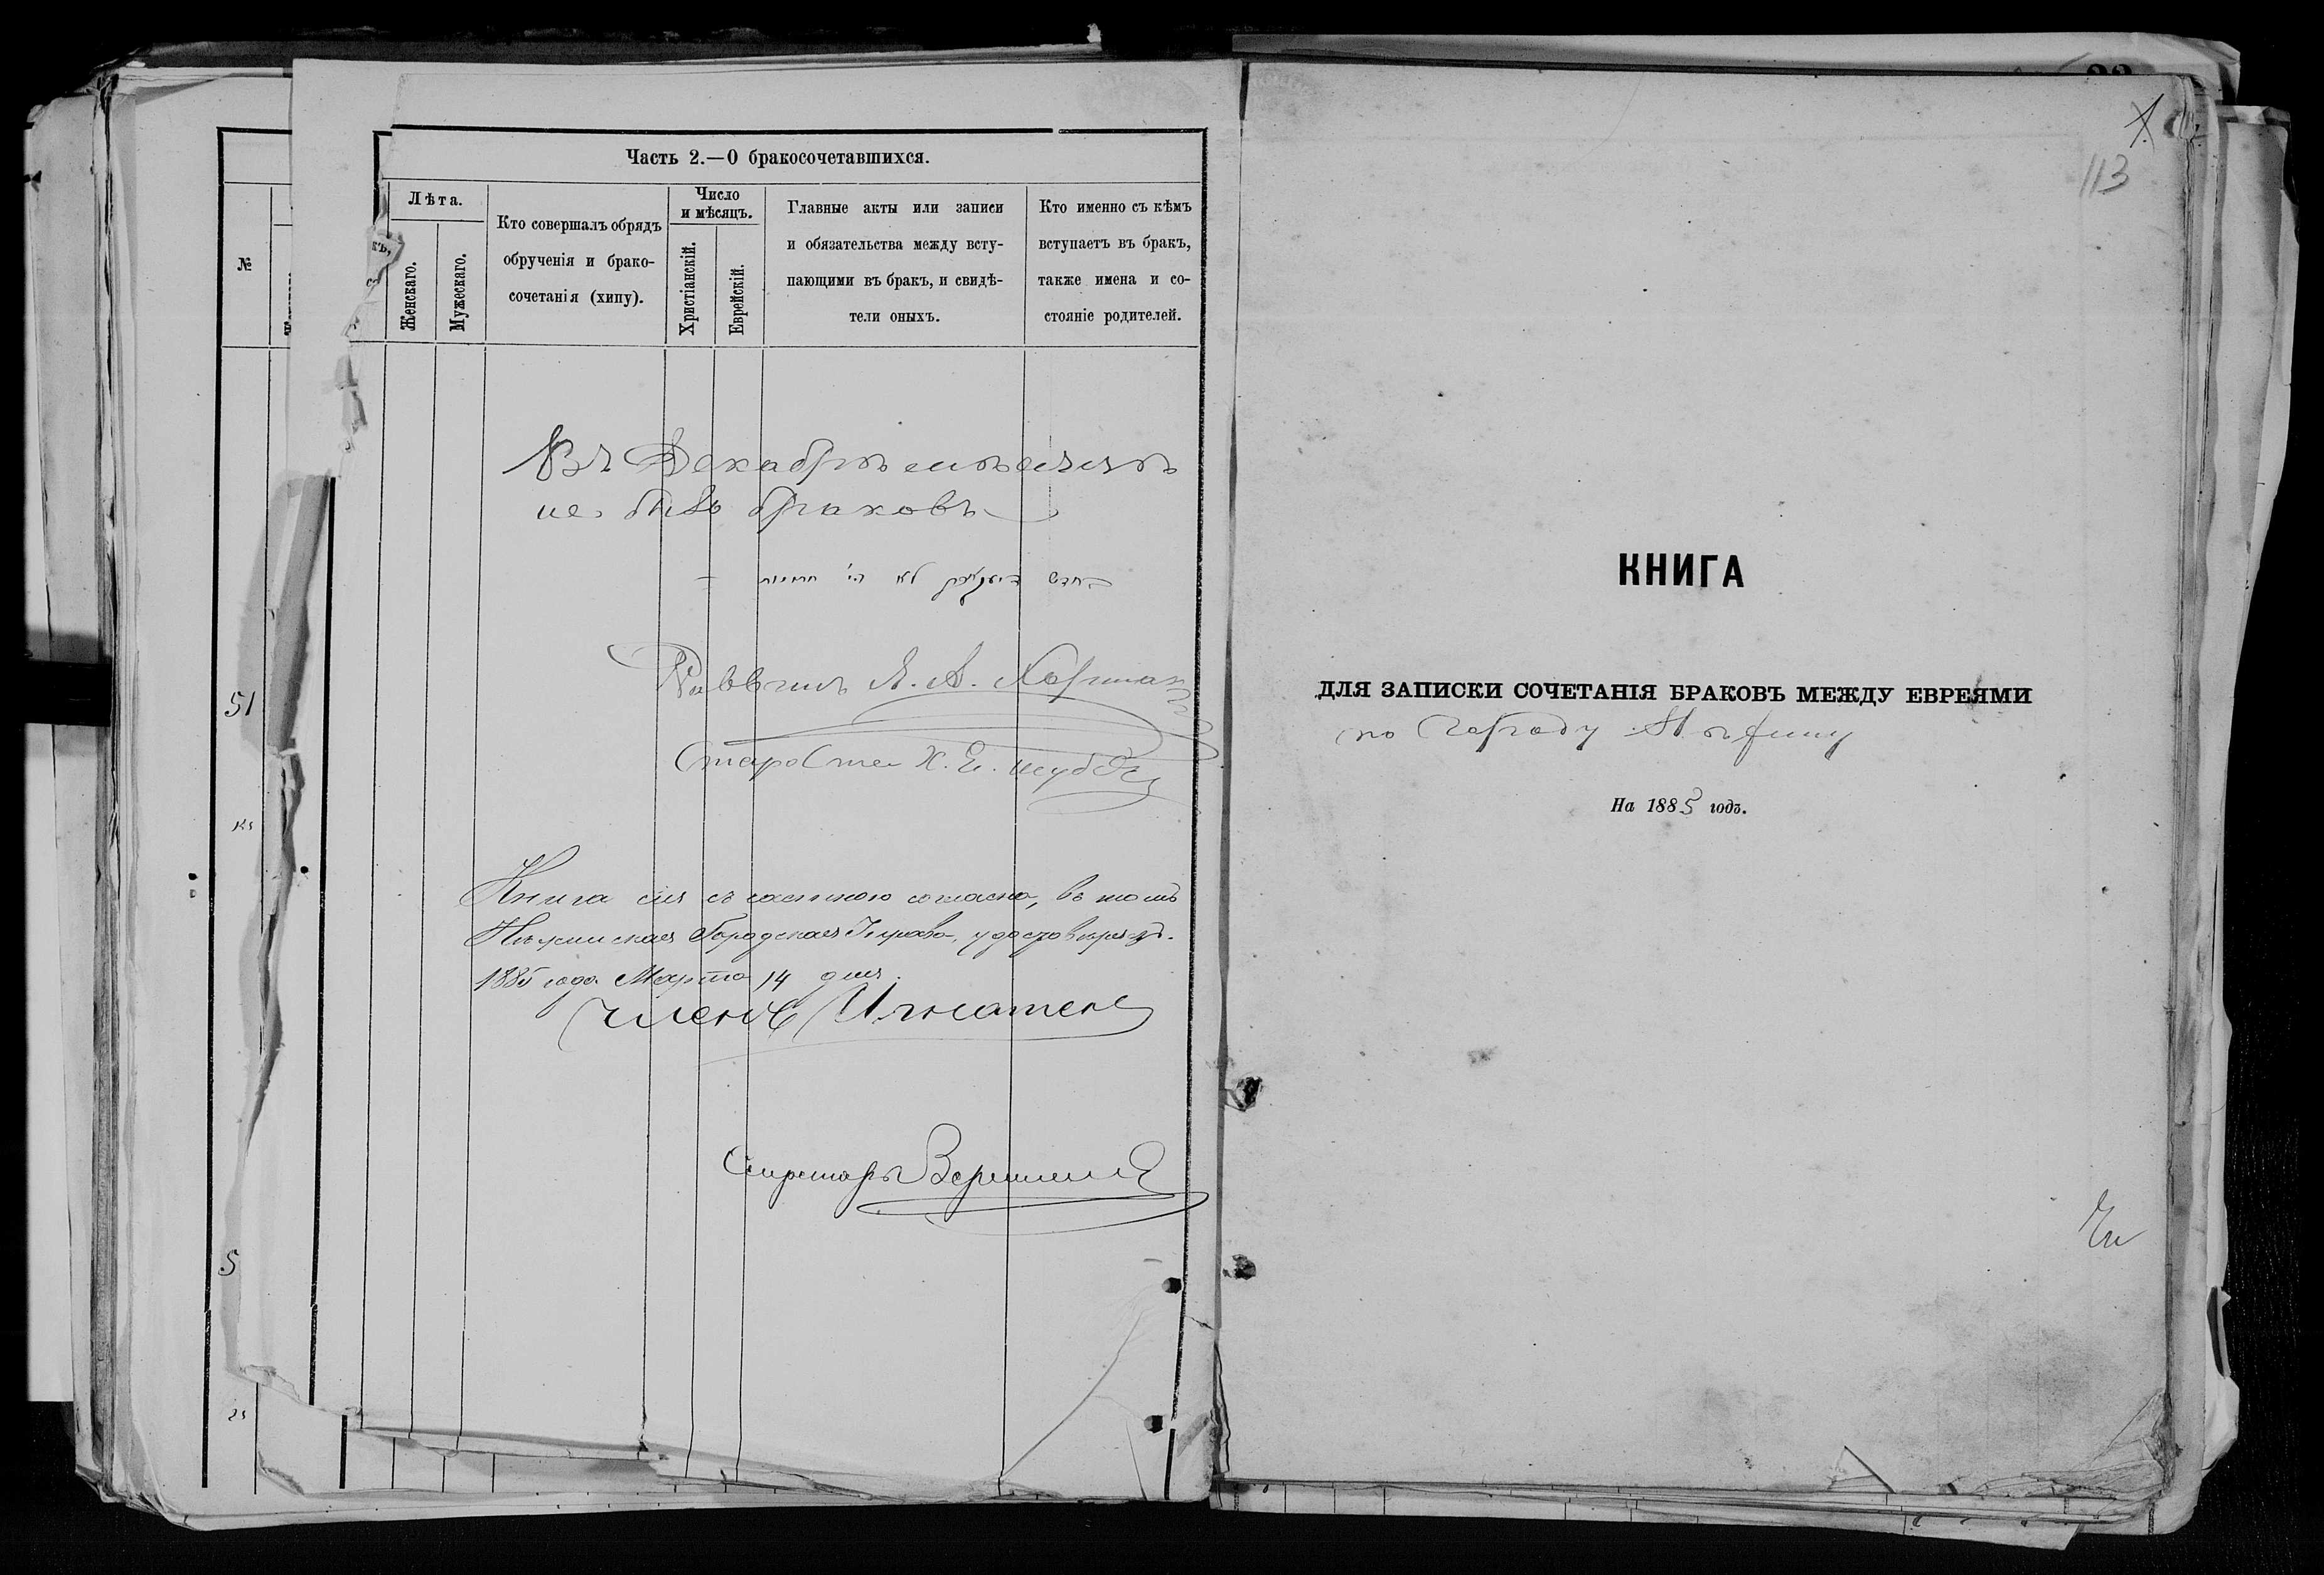 Часть 2.—О бракосочетавшихся.
№
Лѣта.
Женскаго.
Мужескаго.
Кто совершалъ обрядъ
обрученія и брако-
сочетанія (хипу).
Число
и мѣсяцъ.
Христіанскій.
Еврейскій.
Главные акты или записи
и обязательства между всту-
пающими въ бракъ, и свидѣ-
тели оныхъ.
Кто именно съ кѣмъ
вступаетъ въ бракъ,
также имена и со-
стояніе родителей.
Въ Декабрѣ мѣсяцѣ
не было браковъ
לא הי' חתונות
Раввинъ Я. А.
Староста Х. Е.
51
Книга сія съ согласно, въ томъ
Нѣжинская Городская Управа, удостовѣряетъ.
1885 года Марта 14 дня
Членъ
Секретарь
5
113
КНИГА
ДЛЯ ЗАПИСКИ СОЧЕТАНІЯ БРАКОВЪ МЕЖДУ ЕВРЕЯМИ
по городу Нѣжину
На 1885 годъ.